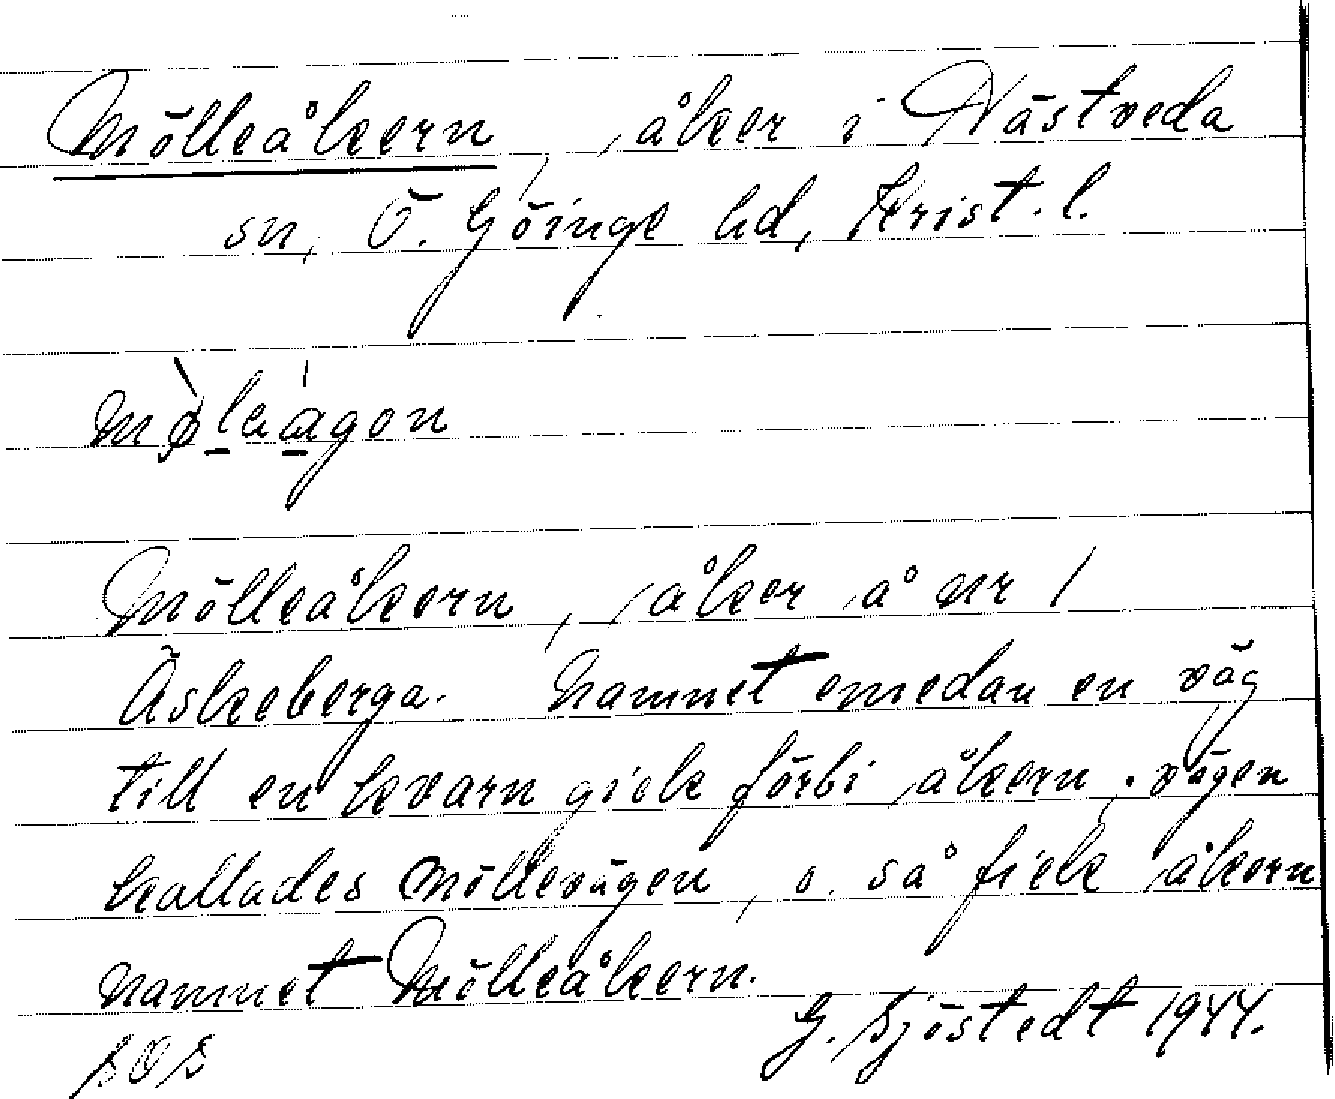 Mölleåkern, åker i Nästveda
sn, Ö. Göinge hd, Krist. l.
Mölleåkern, åker å nr 1
Äskeberga. Namnet emedan en väg
till en kvarn gick förbi åkern. Vägen
kallades Möllevägen, o. så fick åkern
namnet Mölleåkern.
G. Sjöstedt 1944.